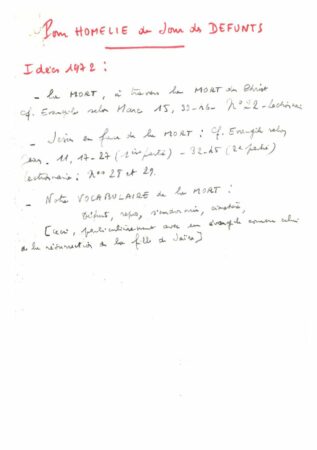 Pour HOMELIE du Jour des DEFUNTS
Idées 1972 :
- La MORT, à travers la MORT du Christ
cf. Evangile selon Marc 15, 33-
N° 22 - Lectionnaire
- Jésus en face de la MORT : cf. Evangile selon
Jean. 11, 17-27 (1ère partie) - 32-45 (2e partie)
Lectionnaire : nos 28 et 29.
- Notre VOCABULAIRE de la MORT :
Défunt, repos, s'endormir, cimetière,
[Ceci, particulièrement avec un évangile comme celui
de la résurrection de la fille de Jaïre]